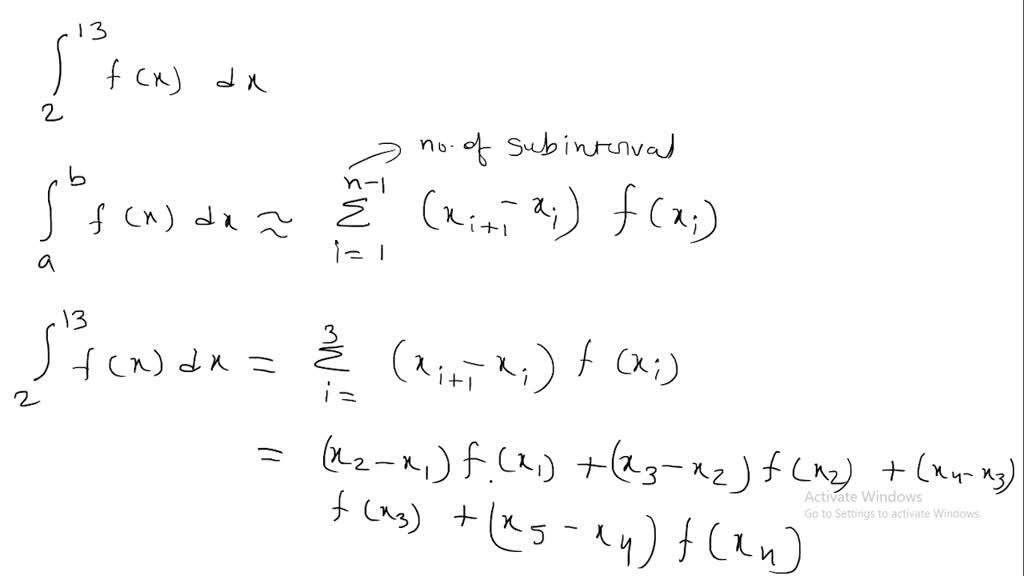 ∫_2^13 f(x) dx
no. of subinterval
∫_a^b f(x) dx ≈ Σ_{i=1}^{n-1} (x_{i+1} - x_i) f(x_i)
∫_2^13 f(x) dx = Σ_{i=}^{3} (x_{i+1} - x_i) f(x_i)
= (x_2 - x_1) f(x_1) + (x_3 - x_2) f(x_2) + (x_4 - x_3)
f(x_3) + (x_5 - x_4) f(x_4)
Activate Windows
Go to Settings to activate Windows.